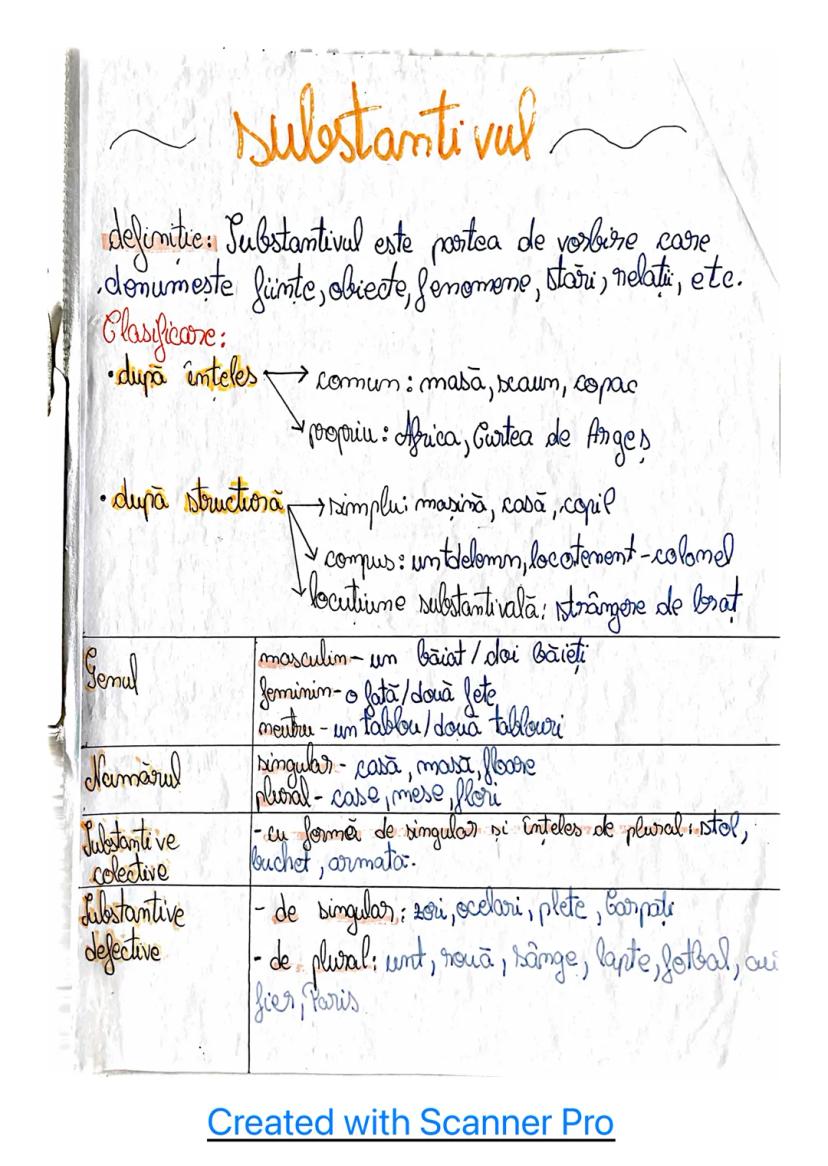 Substantivul
definiție: Substantivul este partea de vorbire care
denumește ființe, obiecte, fenomene, stări, relații, etc.
Clasificare:
• după înțeles → comun: masă, scaun, copac
→ propriu: Africa, Curtea de Argeș
• după structură → simplu: mașină, casă, copil
→ compus: untdelemn, locotenent-colonel
→ locuțiune substantivală: strângere de braț
Genul
masculin - un băiat / doi băieți
feminin - o fată / două fete
neutru - un tablou / două tablouri
Numărul
singular - casă, masă, floare
plural - case, mese, flori
Substantive
colective
- cu formă de singular și înțeles de plural: stol,
buchet, armată.
Substantive
defective
- de singular: zori, ochelari, plete, Carpați
- de plural: unt, rouă, sânge, lapte, fotbal,
fier, Paris
Created with Scanner Pro